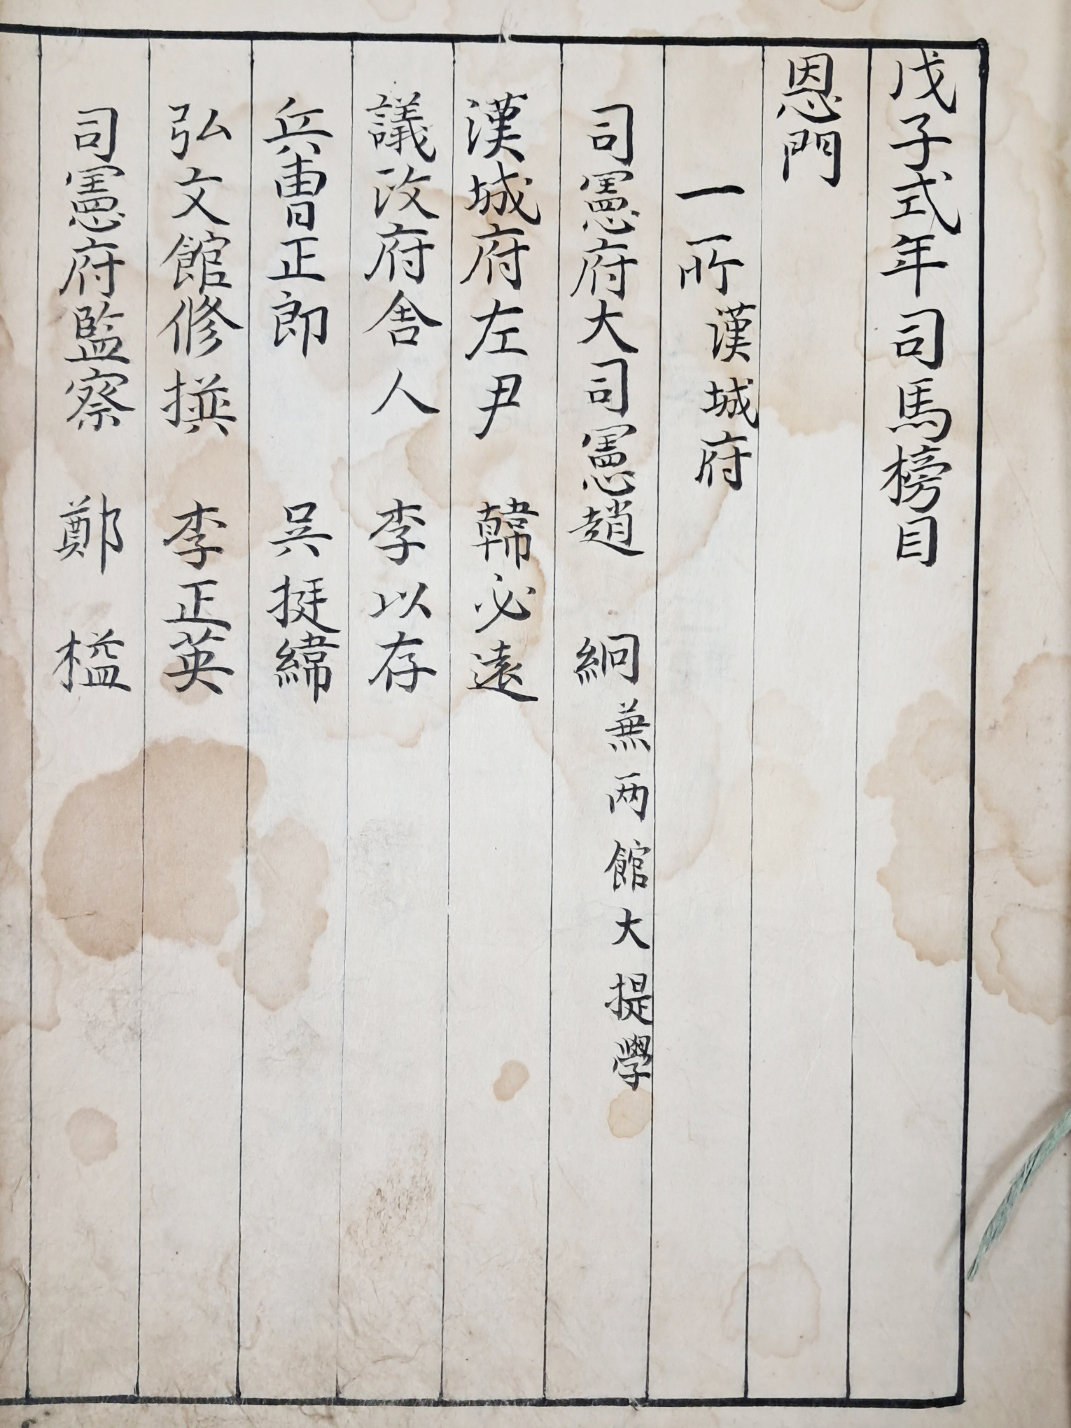 戊子式年司馬榜目
恩門
一所漢城府
司憲府大司憲趙 絅兼两館大提學
漢城府左尹 韓必遠
議政府舎人 李以存
兵曺正郎 吳挺緯
弘文館修撰 李正英
司憲府監察 鄭 榏